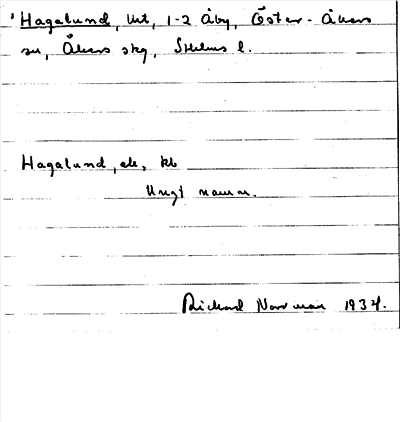 Hagalund, lht, 1-2 Åby, Öster-Åkers
sn, Åkers skg, Sthlms l.
Hagalund, ek, kb
Ungt namn.
Richard Norrman 1934.